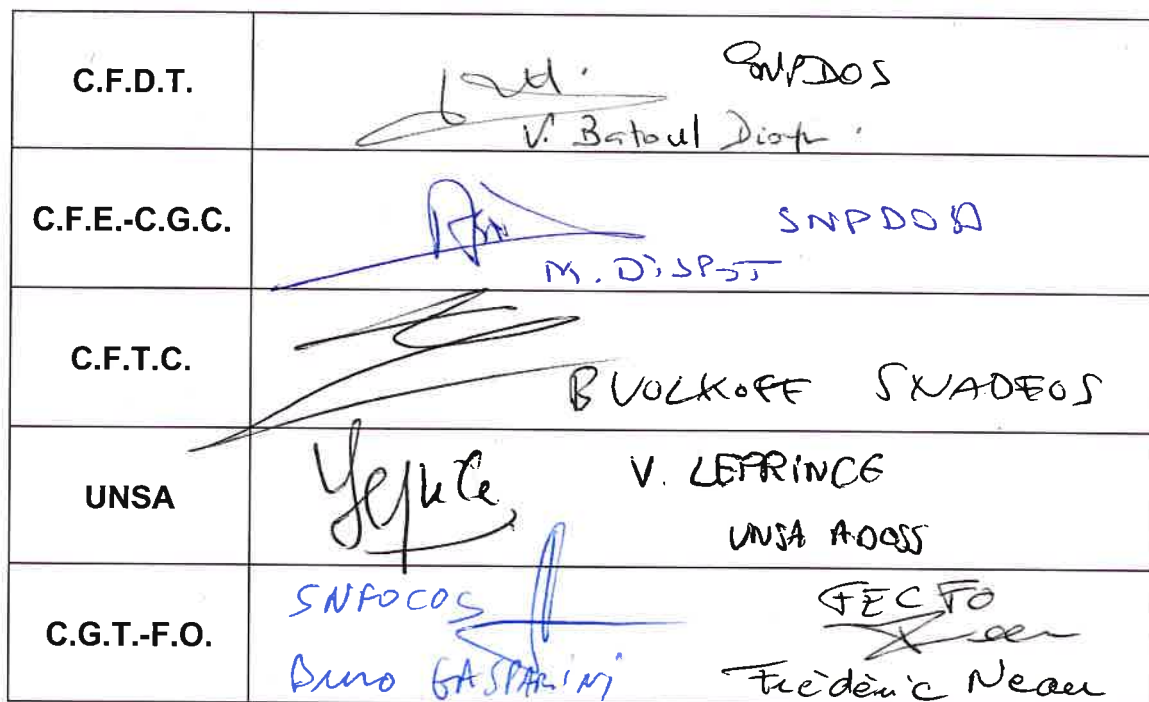 C.F.D.T.
SNPDOS
V. Batoul Diop
C.F.E.-C.G.C.
SNPDOS
M. DISPOT
C.F.T.C.
B VOLKOFF SNADEOS
UNSA
V. LEPRINCE
UNSA ADOSS
C.G.T.-F.O.
SNFOCOS
Bruno GASPARINI
FEC FO
Frédéric Neau